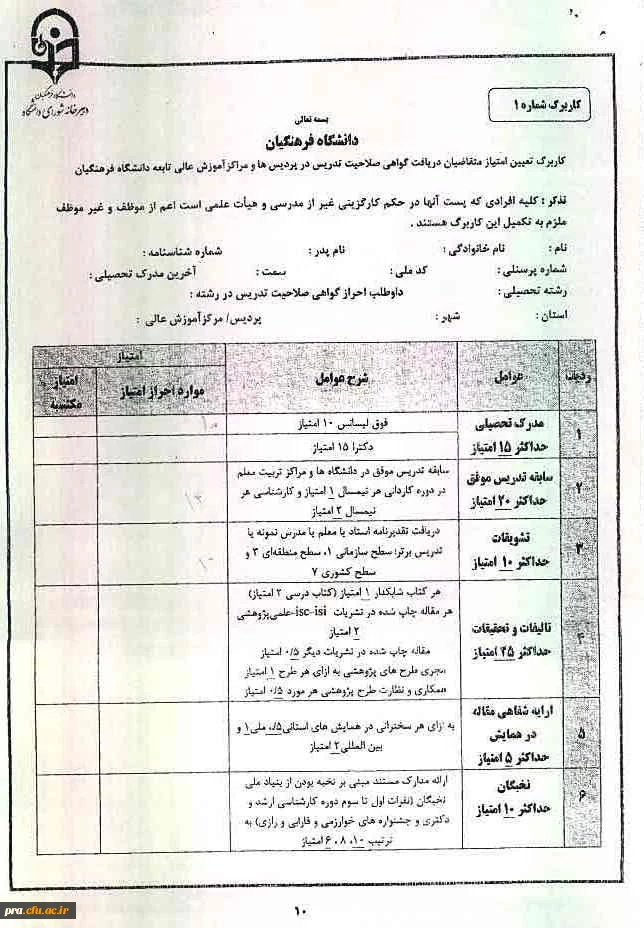 دانشگاه فرهنگیان
دبیرخانه شورای دانشگاه
کاربرگ شماره ۱
بسمه تعالی
دانشگاه فرهنگیان
کاربرگ تعیین امتیاز متقاضیان دریافت گواهی صلاحیت تدریس در پردیس ها و مراکز آموزش عالی تابعه دانشگاه فرهنگیان
تذکر : کلیه افرادی که پست آنها در حکم کارگزینی غیر از مدرسی و هیأت علمی است اعم از موظف و غیر موظف
ملزم به تکمیل این کاربرگ هستند .
نام : نام خانوادگی : نام پدر : شماره شناسنامه :
شماره پرسنلی : کد ملی : سمت : آخرین مدرک تحصیلی :
رشته تحصیلی : داوطلب احراز گواهی صلاحیت تدریس در رشته :
استان : شهر : پردیس/ مرکز آموزش عالی :
ردیف عوامل شرح عوامل امتیاز
موارد احراز امتیاز امتیاز مکتسبه
۱ مدرک تحصیلی
حداکثر ۱۵ امتیاز
فوق لیسانس ۱۰ امتیاز
دکترا ۱۵ امتیاز
۲ سابقه تدریس موفق
حداکثر ۲۰ امتیاز
سابقه تدریس موفق در دانشگاه ها و مراکز تربیت معلم
در دوره کاردانی هر نیمسال ۱ امتیاز و کارشناسی هر
نیمسال ۲ امتیاز
۳ تشویقات
حداکثر ۱۰ امتیاز
دریافت تقدیرنامه استاد یا معلم یا مدرس نمونه یا
تدریس برتر: سطح سازمانی ۱، سطح منطقه‌ای ۳ و
سطح کشوری ۷
۴ تالیفات و تحقیقات
حداکثر ۴۵ امتیاز
هر کتاب شابکدار ۱ امتیاز (کتاب درسی ۲ امتیاز)
هر مقاله چاپ شده در نشریات isc-isi-علمی‌پژوهشی
۲ امتیاز
مقاله چاپ شده در نشریات دیگر ۰/۵ امتیاز
مجری طرح های پژوهشی به ازای هر طرح ۱ امتیاز
همکاری و نظارت طرح پژوهشی هر مورد ۰/۵ امتیاز
۵ ارایه شفاهی مقاله
در همایش
حداکثر ۵ امتیاز
به ازای هر سخنرانی در همایش های استانی ۰/۵، ملی ۱ و
بین المللی ۲ امتیاز
۶ نخبگان
حداکثر ۱۰ امتیاز
ارائه مدارک مستند مبنی بر نخبه بودن از بنیاد ملی
نخبگان (نفرات اول تا سوم دوره کارشناسی ارشد و
دکتری و جشنواره های خوارزمی و فارابی و رازی) به
ترتیب ۱۰، ۸، ۶ امتیاز
۱۰
pra.cfu.ac.ir